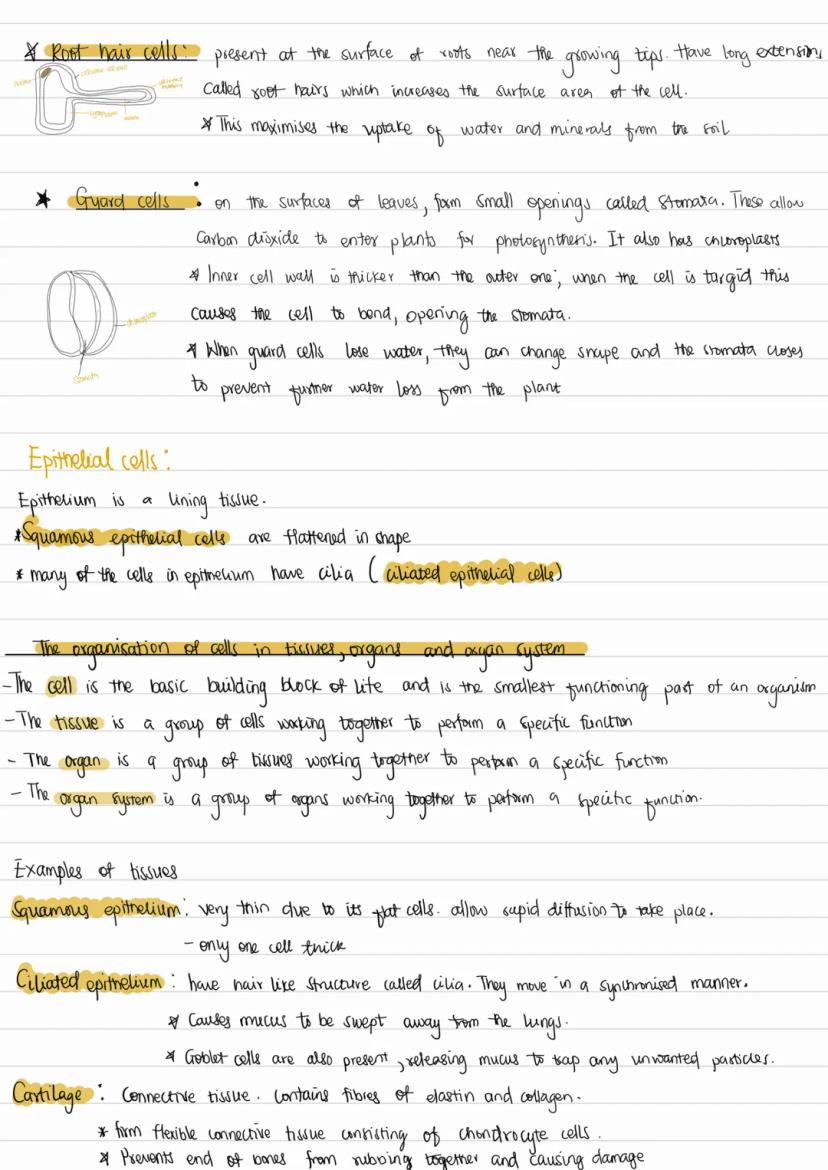 * Root hair cells: present at the surface of roots near the growing tips. Have long extensions
Called root hairs which increases the surface area of the cell.
* This maximises the uptake of water and minerals from the soil
* Guard cells : on the surfaces of leaves, form small openings called stomata. These allow
Carbon dioxide to enter plants for photosynthesis. It also has chloroplasts
* Inner cell wall is thicker than the outer one, when the cell is turgid this
causes the cell to bend, opening the stomata.
chloroplast
* When guard cells lose water, they can change shape and the stomata closes
stomata
to prevent further water loss from the plant
Epithelial cells:
Epithelium is a lining tissue.
* Squamous epithelial cells are flattened in shape
* many of the cells in epithelium have cilia (ciliated epithelial cells)
The organisation of cells in tissues, organs and organ system
- The cell is the basic building block of life and is the smallest functioning part of an organism
- The tissue is a group of cells working together to perform a specific function
- The organ is a group of tissues working together to perform a specific function
- The organ system is a group of organs working together to perform a specific function.
Examples of tissues
Squamous epithelium: very thin due to its flat cells. allow rapid diffusion to take place.
- only one cell thick
Ciliated epithelium : have hair like structure called cilia. They move in a synchronised manner.
* Causes mucus to be swept away from the lungs.
* Goblet cells are also present, releasing mucus to trap any unwanted particles.
Cartilage : Connective tissue. contains fibres of elastin and collagen.
* form flexible connective tissue consisting of chondrocyte cells.
* Prevents end of bones from rubbing together and causing damage